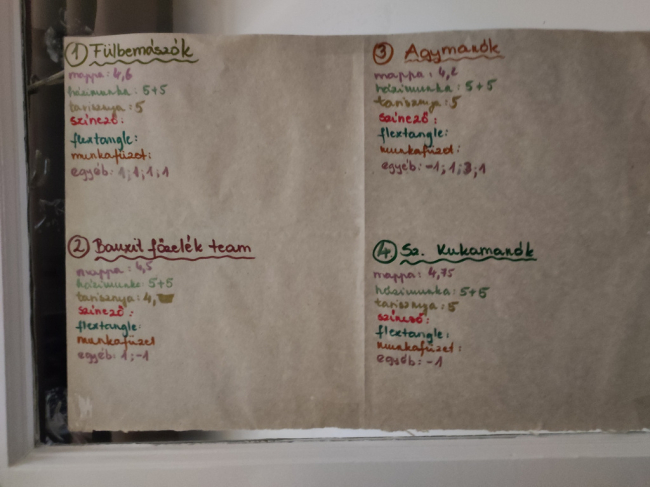 1 Fülbemászók
mappa: 4,6
házimunka: 5+5
tarisznya: 5
színező:
flextangle:
munkafüzet:
egyéb: 1; 1; 1; 1
2 Bauxit főzelék team
mappa: 4,5
házimunka: 5+5
tarisznya: 4,
színező:
flextangle:
munkafüzet
egyéb: 1; -1
3 Agymanók
mappa: 4,2
házimunka: 5+5
tarisznya: 5
színező:
flextangle:
munkafüzet:
egyéb: -1; 1; 1
4 Sz. Kukamanók
mappa: 4,75
házimunka: 5+5
tarisznya: 5
színező:
flextangle:
munkafüzet:
egyéb: -1